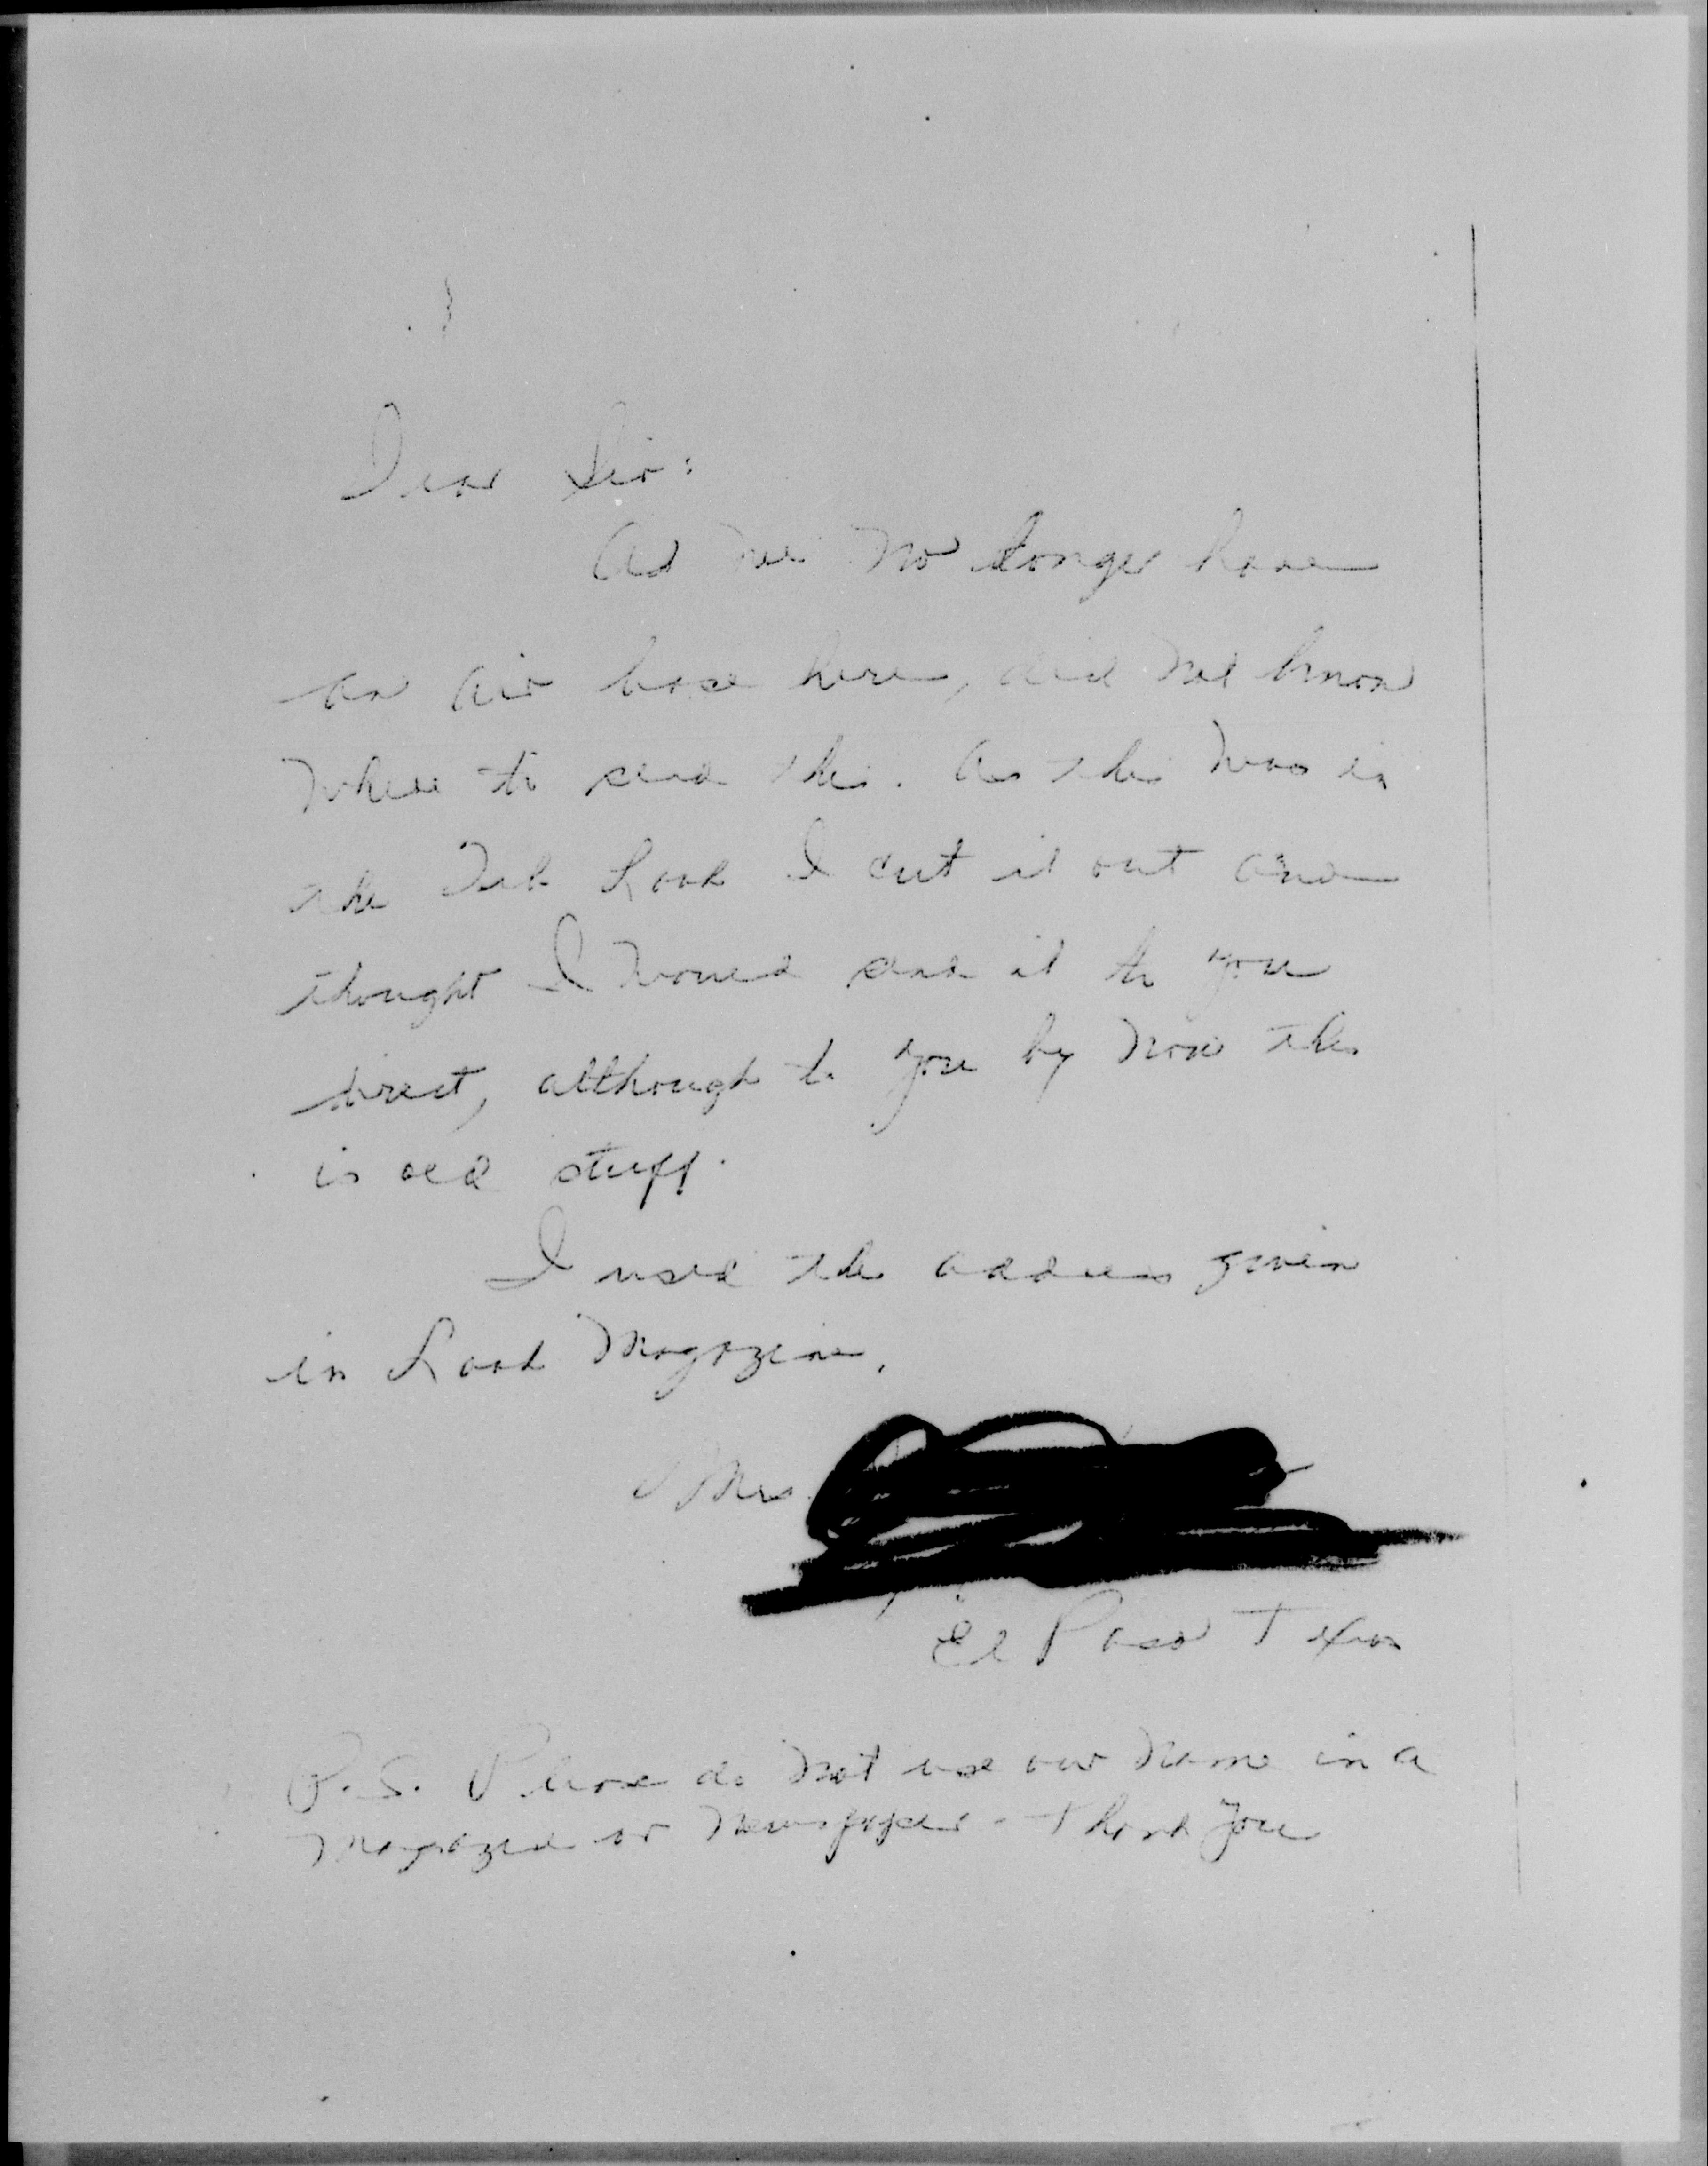 Dear Sir:
As we no longer have
an air base here, did not know
where to send this. As this was in
the Feb. Look I cut it out and
thought I would send it to you
direct, although to you by now this
is old stuff.
I used the address given
in Look Magazine.
Mrs.
El Paso Texas
P.S. Please do not use our name in a
magazine or newspaper - Thank you